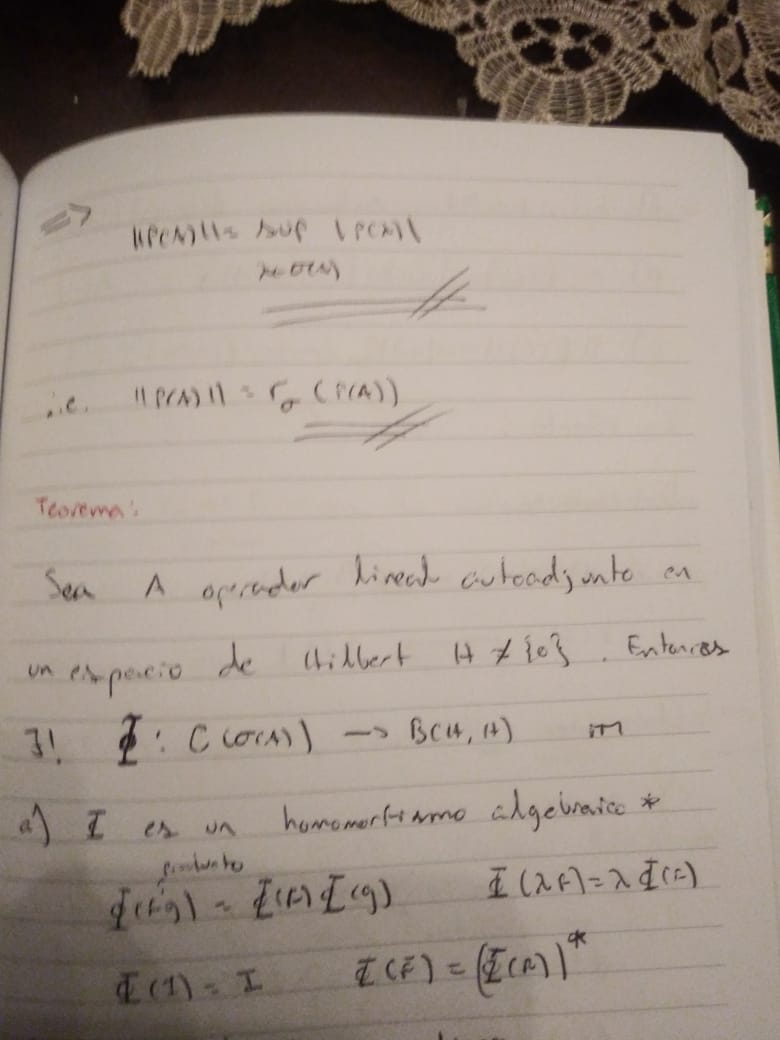 ⇒ ||P(A)|| = sup |P(λ)|
λ∈σ(A)
i.e. ||P(A)|| = r_σ (P(A))
Teorema:
Sea A operador lineal autoadjunto en
un espacio de Hilbert H ≠ {0}. Entonces
∃! Φ: C(σ(A)) → B(H, H)
a) Φ es un homomorfismo algebraico *
producto
Φ(f·g) = Φ(f) Φ(g) Φ(λf) = λ Φ(f)
Φ(1) = I Φ(f̄) = (Φ(f))*